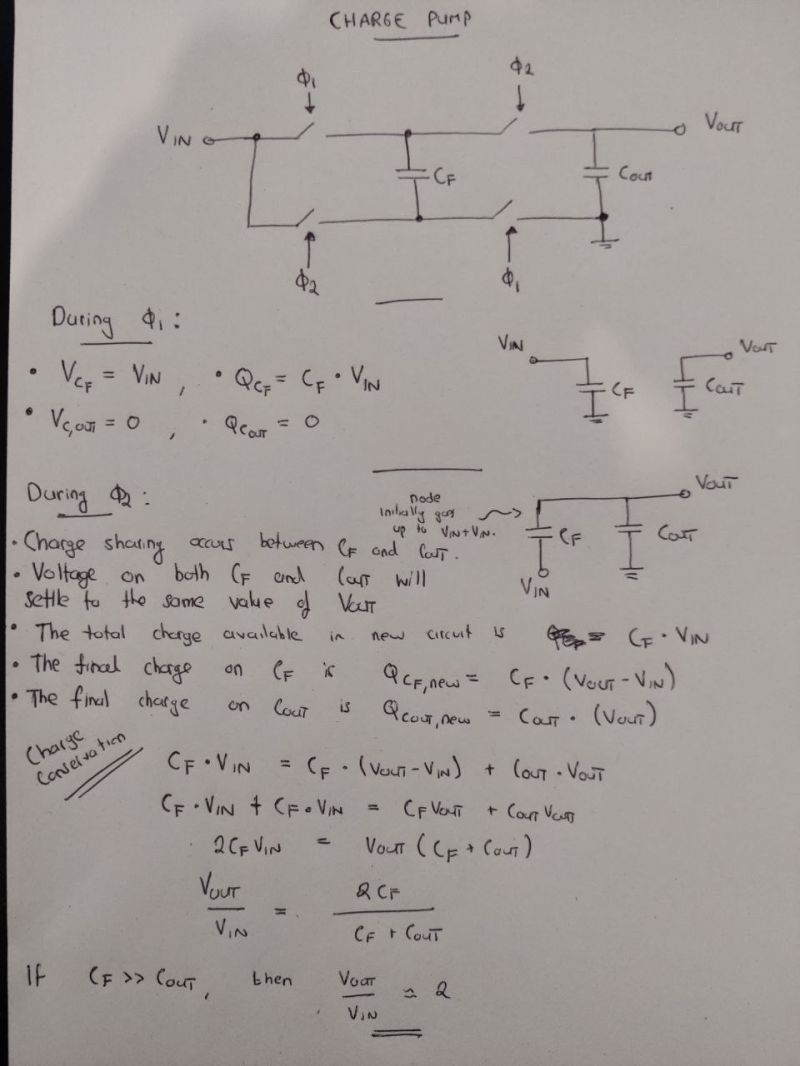 CHARGE PUMP
Φ1 Φ2
VIN VOUT
CF COUT
Φ2 Φ1
During Φ1 :
VIN VOUT
• VCF = VIN , • QCF = CF • VIN
CF COUT
• VC,OUT = 0 , • QCOUT = 0
During Φ2 :
VOUT
node
initially goes
up to VIN+VIN.
CF COUT
VIN
• Charge sharing occurs between CF and COUT.
• Voltage on both CF and COUT will
settle to the same value of VOUT
• The total charge available in new circuit is = CF • VIN
• The final charge on CF is QCF,new = CF • (VOUT - VIN)
• The final charge on COUT is QCOUT,new = COUT • (VOUT)
Charge
Conservation
CF • VIN = CF • (VOUT - VIN) + COUT • VOUT
CF • VIN + CF • VIN = CF VOUT + COUT VOUT
2CF VIN = VOUT (CF + COUT)
VOUT / VIN = 2CF / CF + COUT
If CF >> COUT, then VOUT / VIN ≈ 2